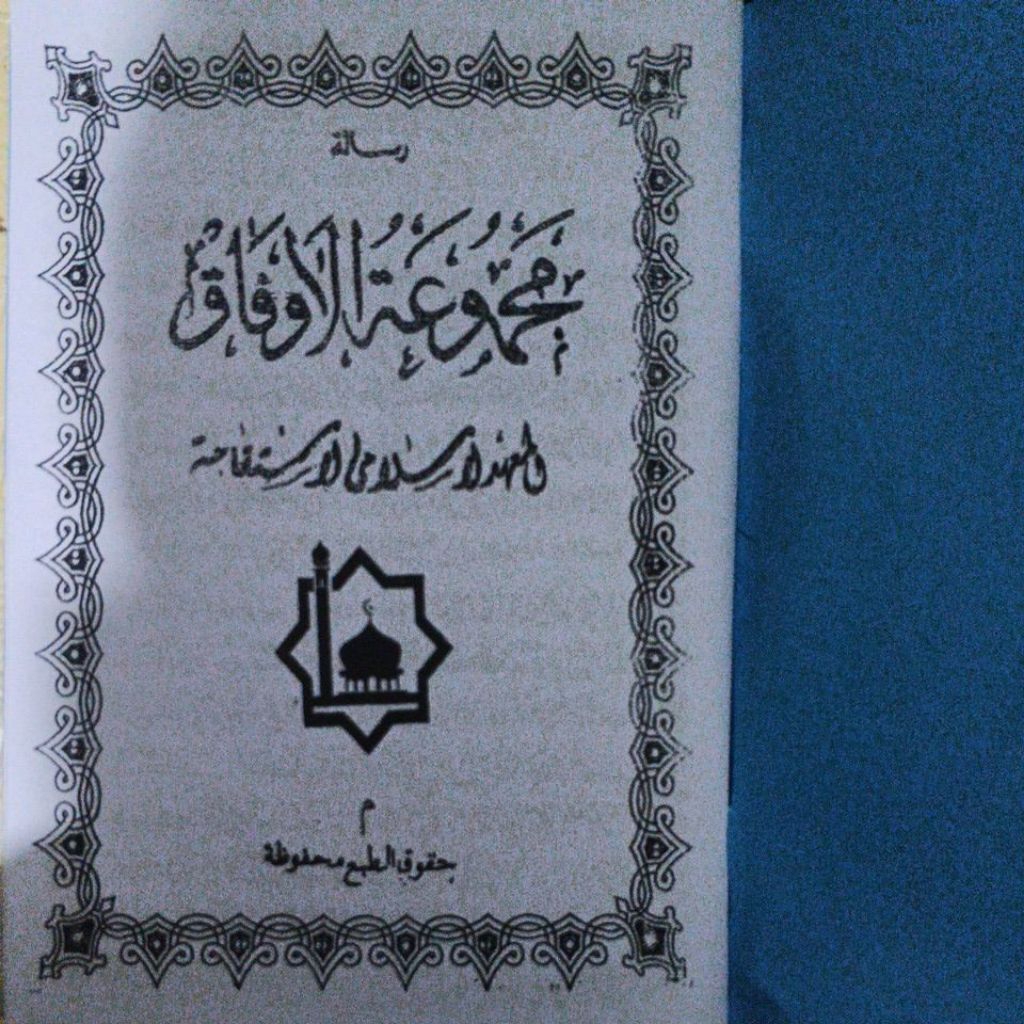 رسالة
مجموعة الاوفاق
المعهد الاسلامي الاستقامة
م
حقوق الطبع محفوظة